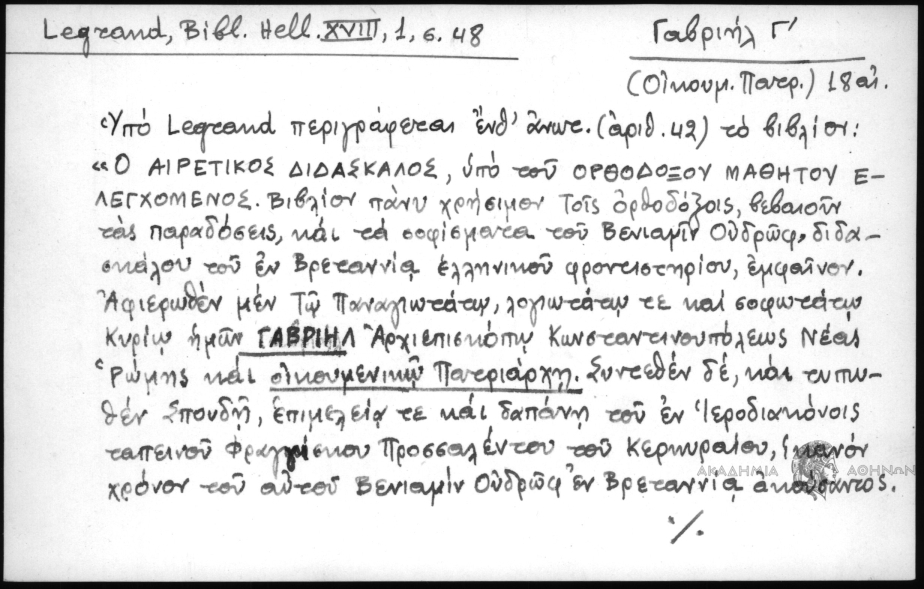 Legrand, Bibl. Hell. XVIII, 1, σ. 48
Γαβριήλ Γ'
(Οἰκουμ. Πατρ.) 18 αἰ.
Ὑπό Legrand περιγράφεται ἔνθ' ἄνωτ. (ἀριθ. 42) τό βιβλίον:
«Ὁ ΑΙΡΕΤΙΚΟΣ ΔΙΔΑΣΚΑΛΟΣ, ὑπό τοῦ ΟΡΘΟΔΟΞΟΥ ΜΑΘΗΤΟΥ Ε-
ΛΕΓΧΟΜΕΝΟΣ. Βιβλίον πάνυ χρήσιμον Τοῖς ὀρθοδόξοις, βεβαιοῦν
τάς παραδόσεις, καί τά σοφίσματα τοῦ Βενιαμίν Οὐδρώφ, διδα-
σκάλου τοῦ ἐν Βρεταννίᾳ ἑλληνικοῦ φροντιστηρίου, ἐμφαῖνον.
Ἀφιερωθέν μέν Τῷ Παναγιωτάτῳ, λογιωτάτῳ τε καί σοφωτάτῳ
Κυρίῳ ἡμῶν ΓΑΒΡΙΗΛ Ἀρχιεπισκόπῳ Κωνσταντινουπόλεως Νέας
Ῥώμης καί οἰκουμενικῷ Πατριάρχῃ. Συντεθέν δέ, καί τυπω-
θέν Σπουδῇ, ἐπιμελείᾳ τε καί δαπάνῃ τοῦ ἐν Ἱεροδιακόνοις
ταπεινοῦ Φραγγίσκου Προσσαλέντου τοῦ Κερκυραίου, ἱκανόν
χρόνον τοῦ αὐτοῦ Βενιαμίν Οὐδρώφ ἐν Βρεταννίᾳ ἀκούσαντος.
ΑΚΑΔΗΜΙΑ ΑΘΗΝΩΝ
./.